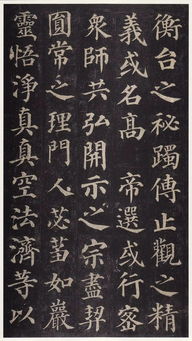 衡台之秘躅傳止觀之精
義或名高帝選或行密
衆師共弘開示之宗盡契
圓常之理門人苾蒭如巖
靈悟淨真真空法濟等以